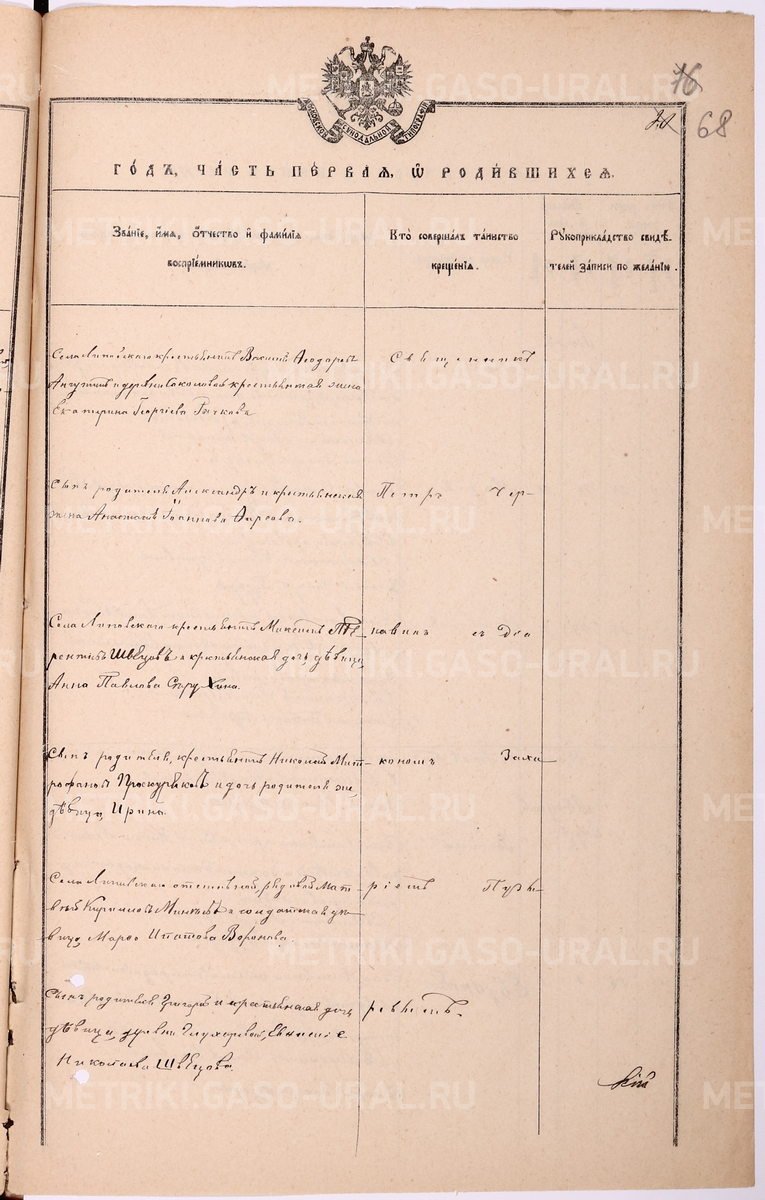 76
68
МОСКОВСКОЙ СѴНОДАЛЬНОЙ ТИПОГРАФІИ
ГО́ДЪ, ЧА́СТЬ ПЕ́РВАЯ, Ѿ РОДИ́ВШИХСЯ.
ЗВА́НІЕ, И́МЯ, О́ТЧЕСТВО И҆ ФАМИ́ЛІЯ
ВОСПРІЕ́МНИКѠВЪ.
КТО̀ СОВЕРША́ЛЪ ТА́ИНСТВО
КРЕЩЕ́НІЯ.
РꙋКОПРИКЛА́ДСТВО СВИДѢ́-
ТЕЛЕЙ ЗА́ПИСИ ПО ЖЕЛА́НІЮ.
Села Липовскаго крестьянинъ Ѳеодоровъ
и деревни Соколовой крестьянская жена
Екатерина Георгіева Рычкова
Священникъ
Сынъ родителя Александръ и крестьянская
жена Анастасія Іоаннова
Петръ Чер-
Села Липовскаго крестьянинъ Максимъ Те-
рентьевъ Швецовъ и крестьянская дочь дѣвица
Анна Павлова
навинъ съ Діа
Сынъ родителя, крестьянинъ Николай Мит-
рофановъ Проскуряковъ и дочь родителя же,
дѣвица Ирина.
кономъ Заха-
Села Липовскаго отставной рядовой Мат-
вѣй Кирилловъ и солдатская дѣ-
вица Марѳа Ипатова Воронова.
ріемъ
Сынъ родителя Григорій и крестьянская дочь
дѣвица, деревни Глухаревой, Евгенія
Николаева Швецова.
METRIKI.GASO-URAL.RU